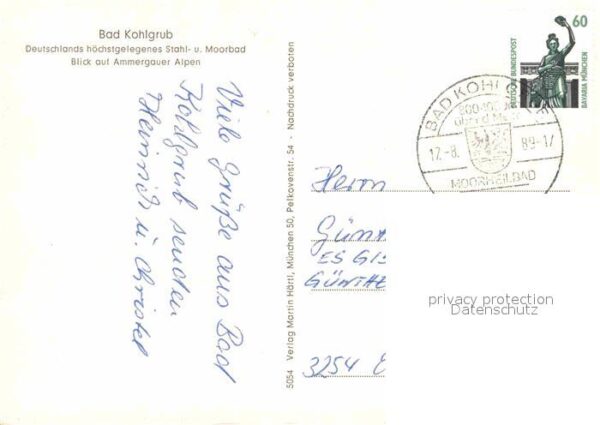 Bad Kohlgrub
Deutschlands höchstgelegenes Stahl- u. Moorbad
Blick auf Ammergauer Alpen
Viele Grüße aus Bad
Kohlgrub senden
Heinrich u. Christel
5054 Verlag Martin Härtl, München 50, Pelkovenstr. 54 · Nachdruck verboten
60
DEUTSCHE BUNDESPOST
BAVARIA MÜNCHEN
BAD KOHLG
17.-8. 89-17
MOORHEILBAD
Herrn
Günt
ES GI
GÜNTHE
3254
privacy protection
Datenschutz